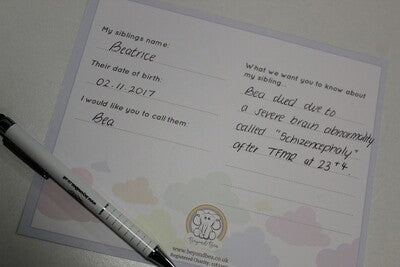 My siblings name:
Beatrice
Their date of birth:
02.11.2017
I would like you to call them
Bea
What we want you to know about
my sibling...
Bea died due to
a severe brain abnormality
called "Schizencephaly"
after TFMR at 23+4.
Beyond Bea
www.beyondbea.co.uk
Registered Charity: